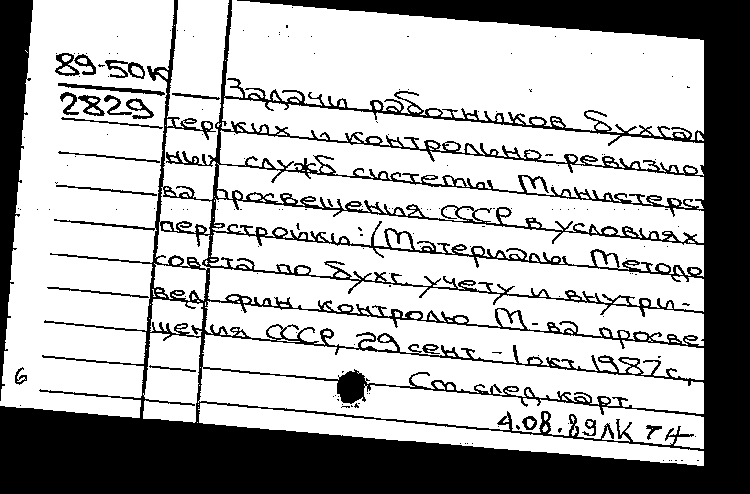 89-50к
2829
Задачи работников бухгал
терских и контрольно-ревизион
ных служб системы Министерст
ва просвещения СССР в условиях
перестройки: (Материалы Методо
совета по бухг. учету и внутри-
вед. фин. контролю М-ва просве-
щения СССР, 29 сент. - 1 окт. 1987 г.,
См. след. карт.
6
4.08.89 ЛК ТН